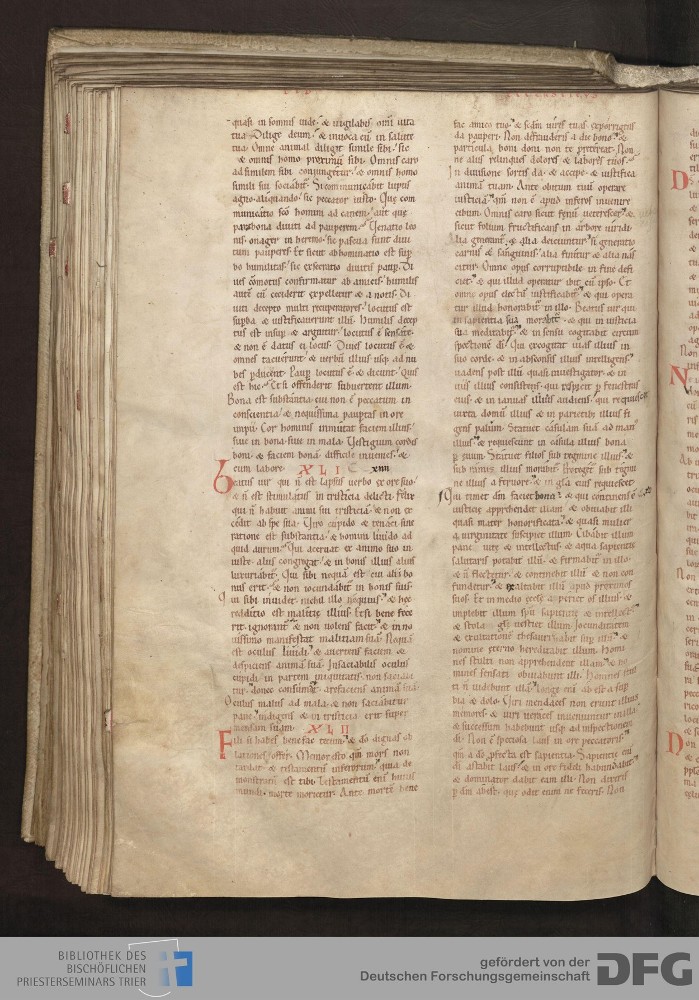 LIB
ECCLESIASTICUS
quasi in somnis vide. & vigilabis omni vita
tua Dilige deum. & invoca eu in salute
tua Omne animal diligit simile sibi. sic
& omnis homo proximu sibi. Omnis caro
ad similem sibi coniungetur. & omnis homo
simili sui sociabit. Si communicabit lupus
agno aliquando. sic peccator iusto. Que com
municatio sco homini ad canem. aut que
pars bona diviti ad pauperem. Venatio leo
nis onager in heremo. sic pascua sunt divi
tum pauperes Et sicut abhominatio est sup
bo humilitas. sic execratio divitis paup. Di
ves comotus confirmatur ab amicis. humilis
aute cu ceciderit expelletur & a notis. Di
viti decepto multi recuperatores. locutus est
supba & iustificaverunt illu. Humilis decep
tus est insup & arguitur. locutus e sensate
& non e datus ei locus. Dives locutus e &
omnes tacuerunt. & verbu illius usq ad nu
bes pducent. Paup locutus e & dicunt. Quis
est hic. Et si offenderit subvertent illum.
Bona est substantia. cui non e peccatum in
conscientia. & nequissima paupertas in ore
impii. Cor hominis inmutat faciem illius.
sive in bona. sive in mala. Vestigium cordis
boni. & faciem bona. difficile invenies. &
cum labore. XLI C xiiii
Beatus vir qui n est lapsus verbo ex ore suo.
& n est stimulatus in tristicia delicti. Felix
qui n habuit animi sui tristicia. & non ex
cidit ab spe sua. Viro cupido & tenaci. sine
ratione est substantia. & homini livido ad
quid aurum. Qui acervat ex animo suo in
iuste. aliis congregat. & in bonis illius alius
luxuriabit. Qui sibi nequa est. cui alii bo
nus erit. & non iocundabit in bonis suis.
Qui sibi invidet. nichil illo nequius. & hec
redditio est malitie illius. Et si bene fece
rit. ignorant & non volens facit. & in no
vissimo manifestat malitiam sua. Nequa
est oculus lividi. & avertens faciem &
despiciens anima sua. Insatiabilis oculus
cupidi in partem iniquitatis. non satiabi
tur. donec consumat arefaciens anima sua.
Oculus malus ad mala. & non satiabitur
pane. indigens & in tristicia erit super
mensam suam. XLII
Fili si habes benefac tecum. & do dignas ob
lationes offer. Memor esto qm mors non
tardat. & testamentu inferorum. quia de
monstratu est tibi. Testamentu eni huius
mundi. morte morietur. Ante morte bene
fac amico tuo. & sedm vires tuas exporrigens
da pauperi. Non defrauderis a die bono. &
particula boni doni non te pretereat. Non
ne aliis relinques dolores & labores tuos.
In divisione sortis da & accipe. & iustifica
animā tuam. Ante obitum tuu operare
iusticia. qm non e apud inferos invenire
cibum. Omnis caro sicut fenu veterescet. &
sicut folium fructificans in arbore viridi.
Alia generant. & alia deiciuntur. Si generatio
carnis & sanguinis. alia finitur & alia nas
citur. Omne opus corruptibile in fine defi
ciet. & qui illud operatur ibit cu ipso. Et
omne opus electu iustificabit. & qui opera
tur illud honorabitur in illo. Beatus vir qui
in sapientia sua morabit. & qui in iusticia
sua meditabit. & in sensu cogitabit circum
spectione di. Qui excogitat vias illius in
suo corde. & in absconsis illius intelligens.
vadens post illu quasi investigator. & in
viis illius consistens. qui respicit p fenestras
eius. & in ianuas illius audiens. qui requiescit
iuxta domu illius & in parietib illius fi
gens palum. Statuet casulam sua ad man
illius. & requiescunt in casula illius bona
p evum. Statuet filios sub tegmine illius. &
sub ramis illius morabit. Proteget sub tegmi
ne illius a fervore. & in gla eius requiescet.
Qui timet dm faciet bona. & qui continens e
iusticie apprehendet illam. & obviabit illi
quasi mater honorificata. & quasi mulier
a virginitate suscipiet illum. Cibabit illum
pane vite & intellectus. & aqua sapientie
salutaris potabit illu. & firmabit in illo.
& n flectetur. & continebit illu & non con
fundetur. & exaltabit illu apud proximos
suos. Et in medio eccle aperiet os illius. &
implebit illum spu sapientie & intellect
& stola gle vestiet illum. Jocunditatem
& exultatione thesaurizabit sup illu. &
nomine eterno hereditabit illum. Homi
nes stulti non apprehendent illam. & ho
mines sensati obviabunt illi. Homines stul
ti n videbunt illa. longe eni ab est a sup
bia & dolo. Viri mendaces non erunt illius
memores. & viri veraces invenientur in illa.
& successum habebunt usq ad inspectionem
di. Non e speciosa laus in ore peccatoris.
qm a do pfecta est sapientia. Sapientie eni
di astabit laus. & in ore fideli habundabit
& dominator dabit eam illi. Non dixeris
p dm abest. que odit enim ne feceris. Non
BIBLIOTHEK DES
BISCHÖFLICHEN
PRIESTERSEMINARS TRIER
gefördert von der
Deutschen Forschungsgemeinschaft
DFG